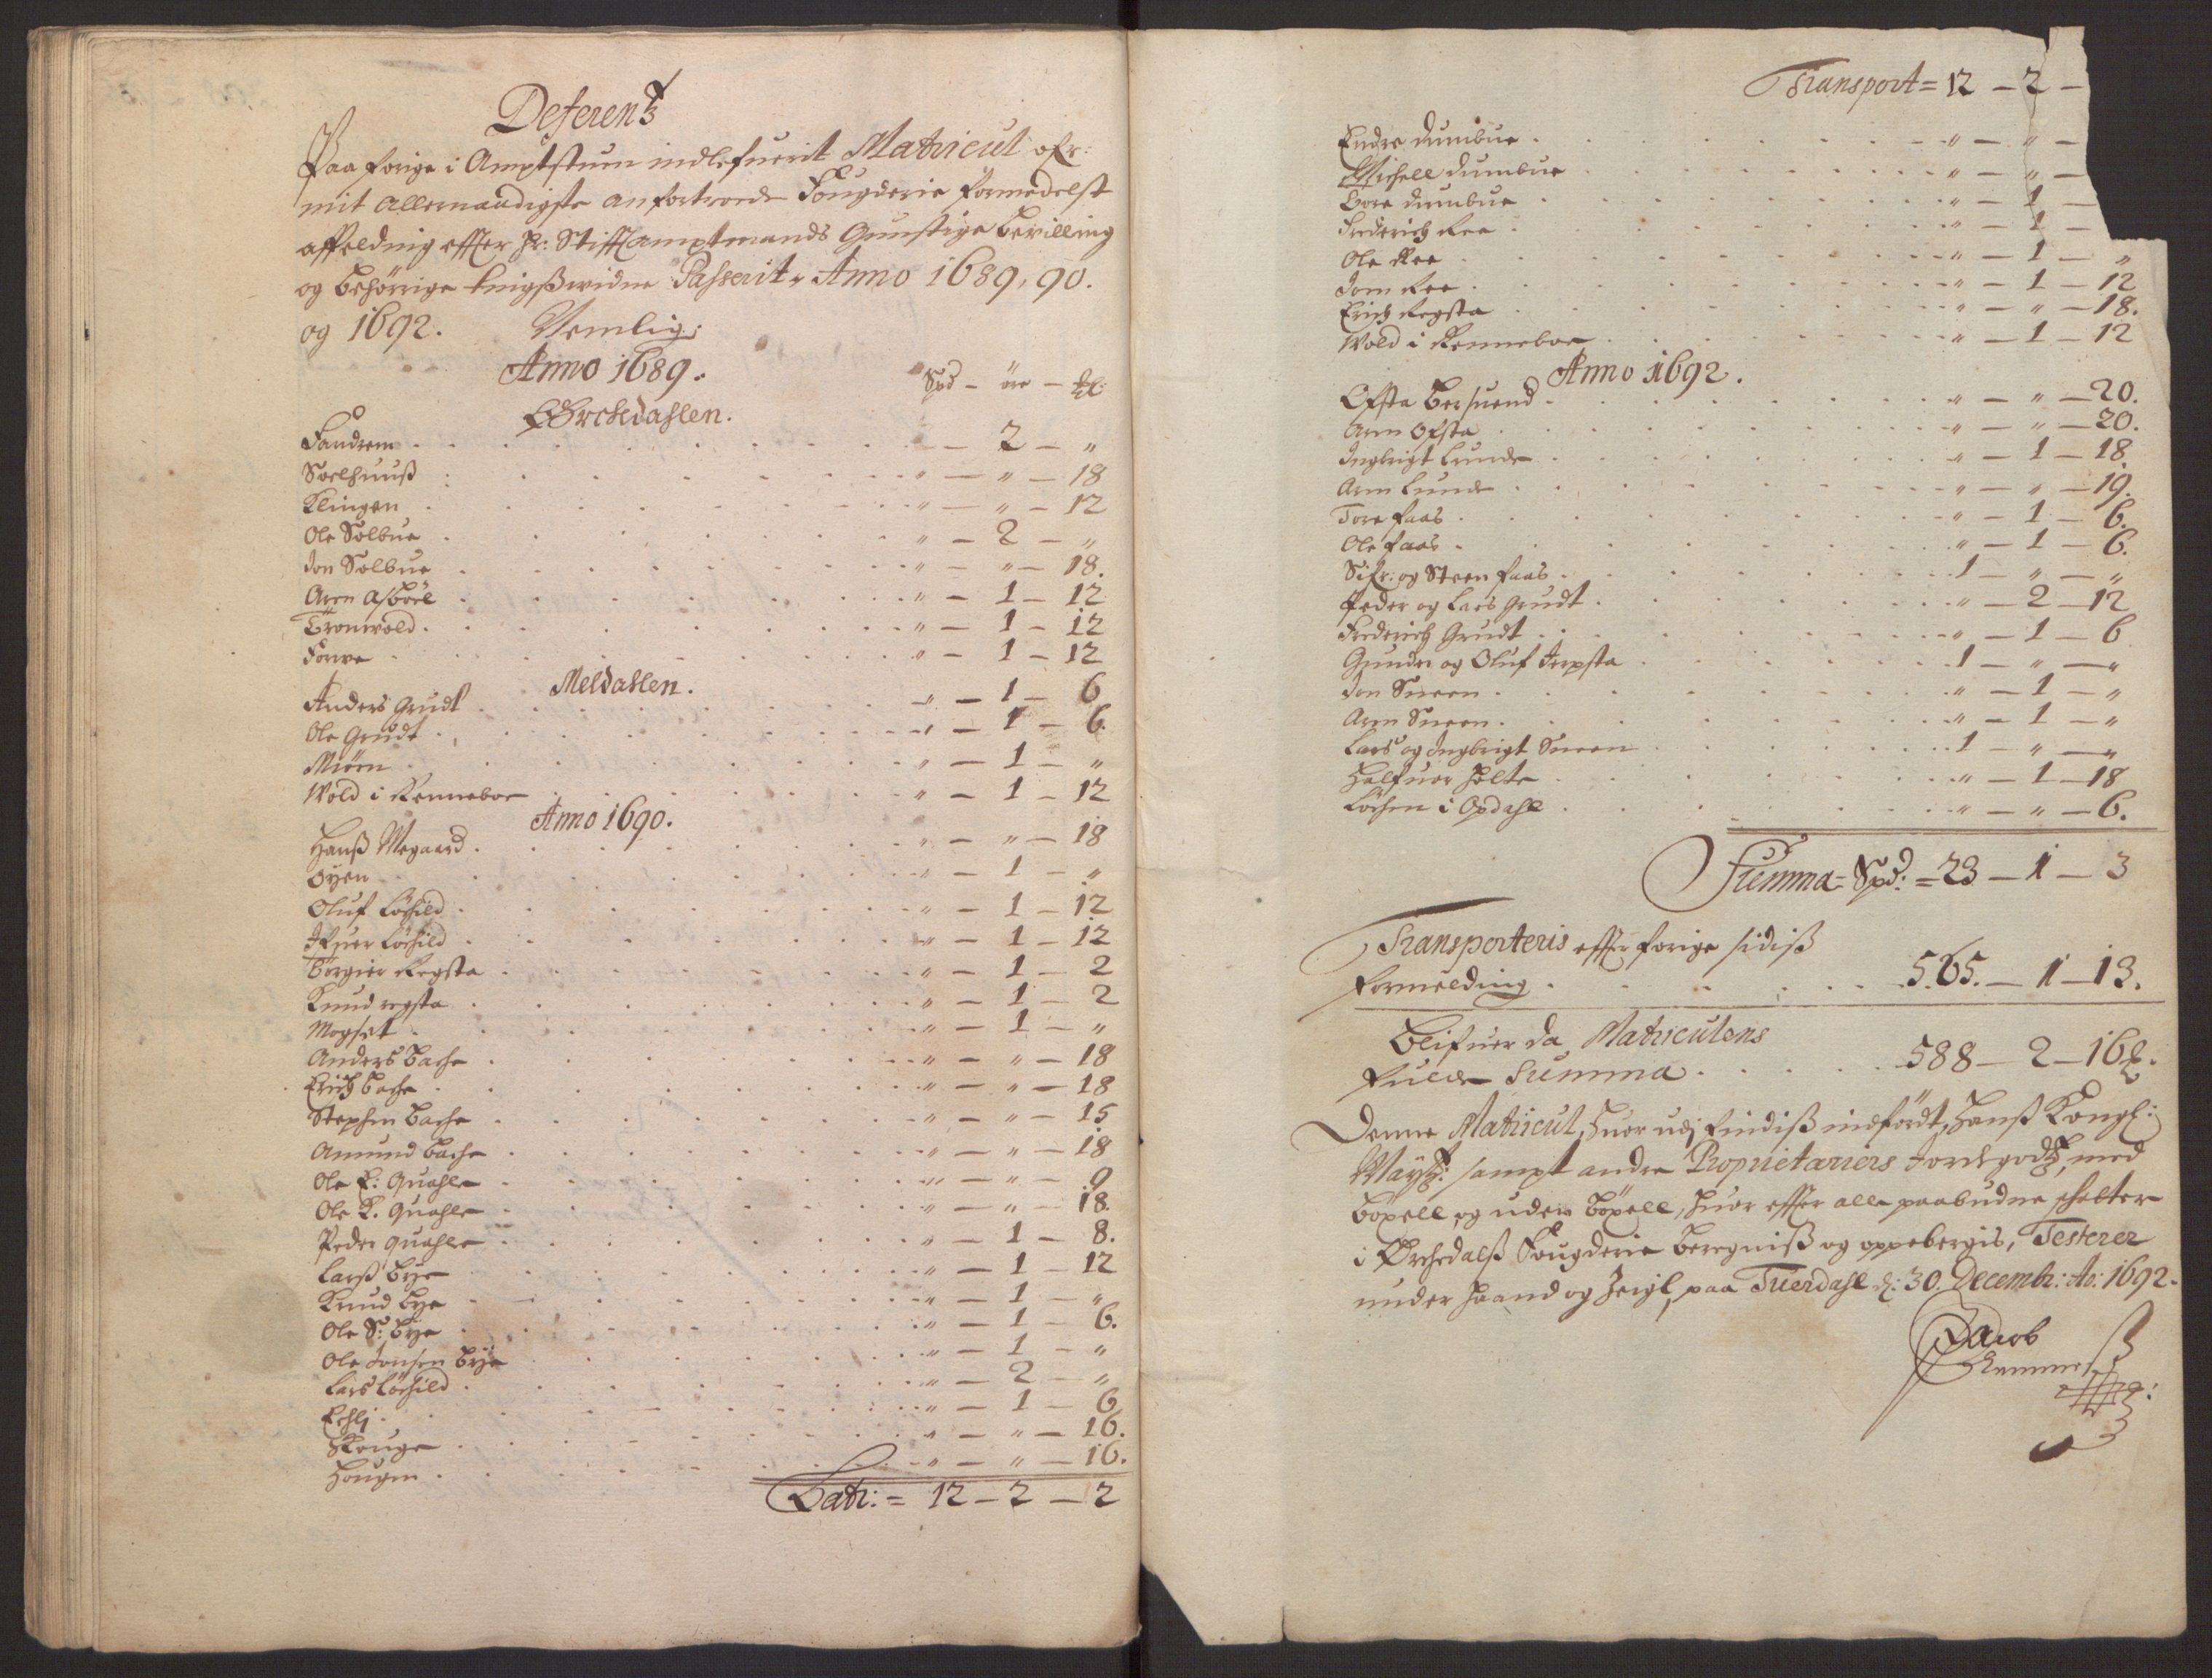 Deferentz
Paa forige i Amptstuen indlefuerit Matricul ofr:
mit Allernaadigste anfortroede Fougderie formedelst
affelding effter Hr: Stifftamptmands Gunstige bevilling
og behörige tingßwidne Passerit, Anno 1689, 90.
og 1692. Nemlig:
Anno 1689. Spd - öre - ₰:
Orchedahlen.
Fandrem - 2 - "
Soelhuuß " - " - 18
Klingen " - " - 12
Ole Solbue " - 2 - "
Jon Solbue " - " - 18.
Aren Asböel " - 1 - 12
Trönwold " - 1 - 12
Forwe " - 1 - 12
Meldahlen.
Anders Grudt " - 1 - 6
Ole Grudt " - 1 - 6.
Miöen " - 1 - "
Wold i Renneboe " - 1 - 12
Anno 1690.
Hanß Megaard " - " - 18
Öyen " - 1 - "
Oluf Löchild " - 1 - 12
Ifuer Löchild " - 1 - 12
Börgier Regsta " - 1 - 2
Knud regsta " - 1 - 2
Mogset " - 1 - "
Anders bache " - " - 18
Erich bache " - " - 18
Stephen bache " - " - 15
Amund bache " - " - 18
Ole E: Quahle " - " - 9
Ole K. Quahle " - " - 18.
Peder quahle " - 1 - 8.
Larß bye " - 1 - 12
Knud bye " - 1 - "
Ole S: bye " - 1 - 6.
Ole Jonsen bye " - 1 - "
Lars Löchild " - 2 - "
Echlj " - 1 - 6
Schouge " - " - 16.
Hougen " - " - 16.
Latr: = 12 - 2 - 2
Transport = 12 - 2 -
Endre dumbue " - " -
Michell dumbue " - " -
Tore dumbue " - 1 -
Frederich Ree " - 1 -
Ole Ree " - 1 - "
Joen Ree " - 1 - 12
Erich Regsta " - " - 18.
Wold i Renneboe " - 1 - 12
Anno 1692.
Ofsta bersuend " - " - 20.
Aren Ofsta " - " - 20.
Ingbrigt Lunde " - 1 - 18
Aren Lunde " - " - 19.
Tore faas " - 1 - 6.
Ole faas " - 1 - 6.
Sifr: og Steen faas 1 - " - "
Peder og Lars Grudt " - 2 - 12
Frederich Grudt " - 1 - 6
Gunder og Oluf Jerpsta 1 - " - "
Jon Sneen " - 1 - "
Aren Sneen " - 1 - "
Lars og Ingbrigt Sneen 1 - " - "
Halfuor Holte " - 1 - 18
Löchen i Opdahl " - " - 6.
Summa = Spd: = 23 - 1 - 3
Transporteris effter forige sidiß
formelding 565. - 1 - 13.
Blifuer da Matriculens
fulde Summa 588 - 2 - 16₰.
Denne Matricul, huor udj findiß indfördt, Hanß Kongl:
Maytz: sampt andre Proprietariers Jordegodtz, med
böxell, og uden böxell, huor effter alle paabudne schatter
i Orchedalß Fougderie beregniß og oppebergis, Testerer
under Haand og Zeigl, paa Tuerdahl d: 30. Decembr: Ao: 1692.
Jacob